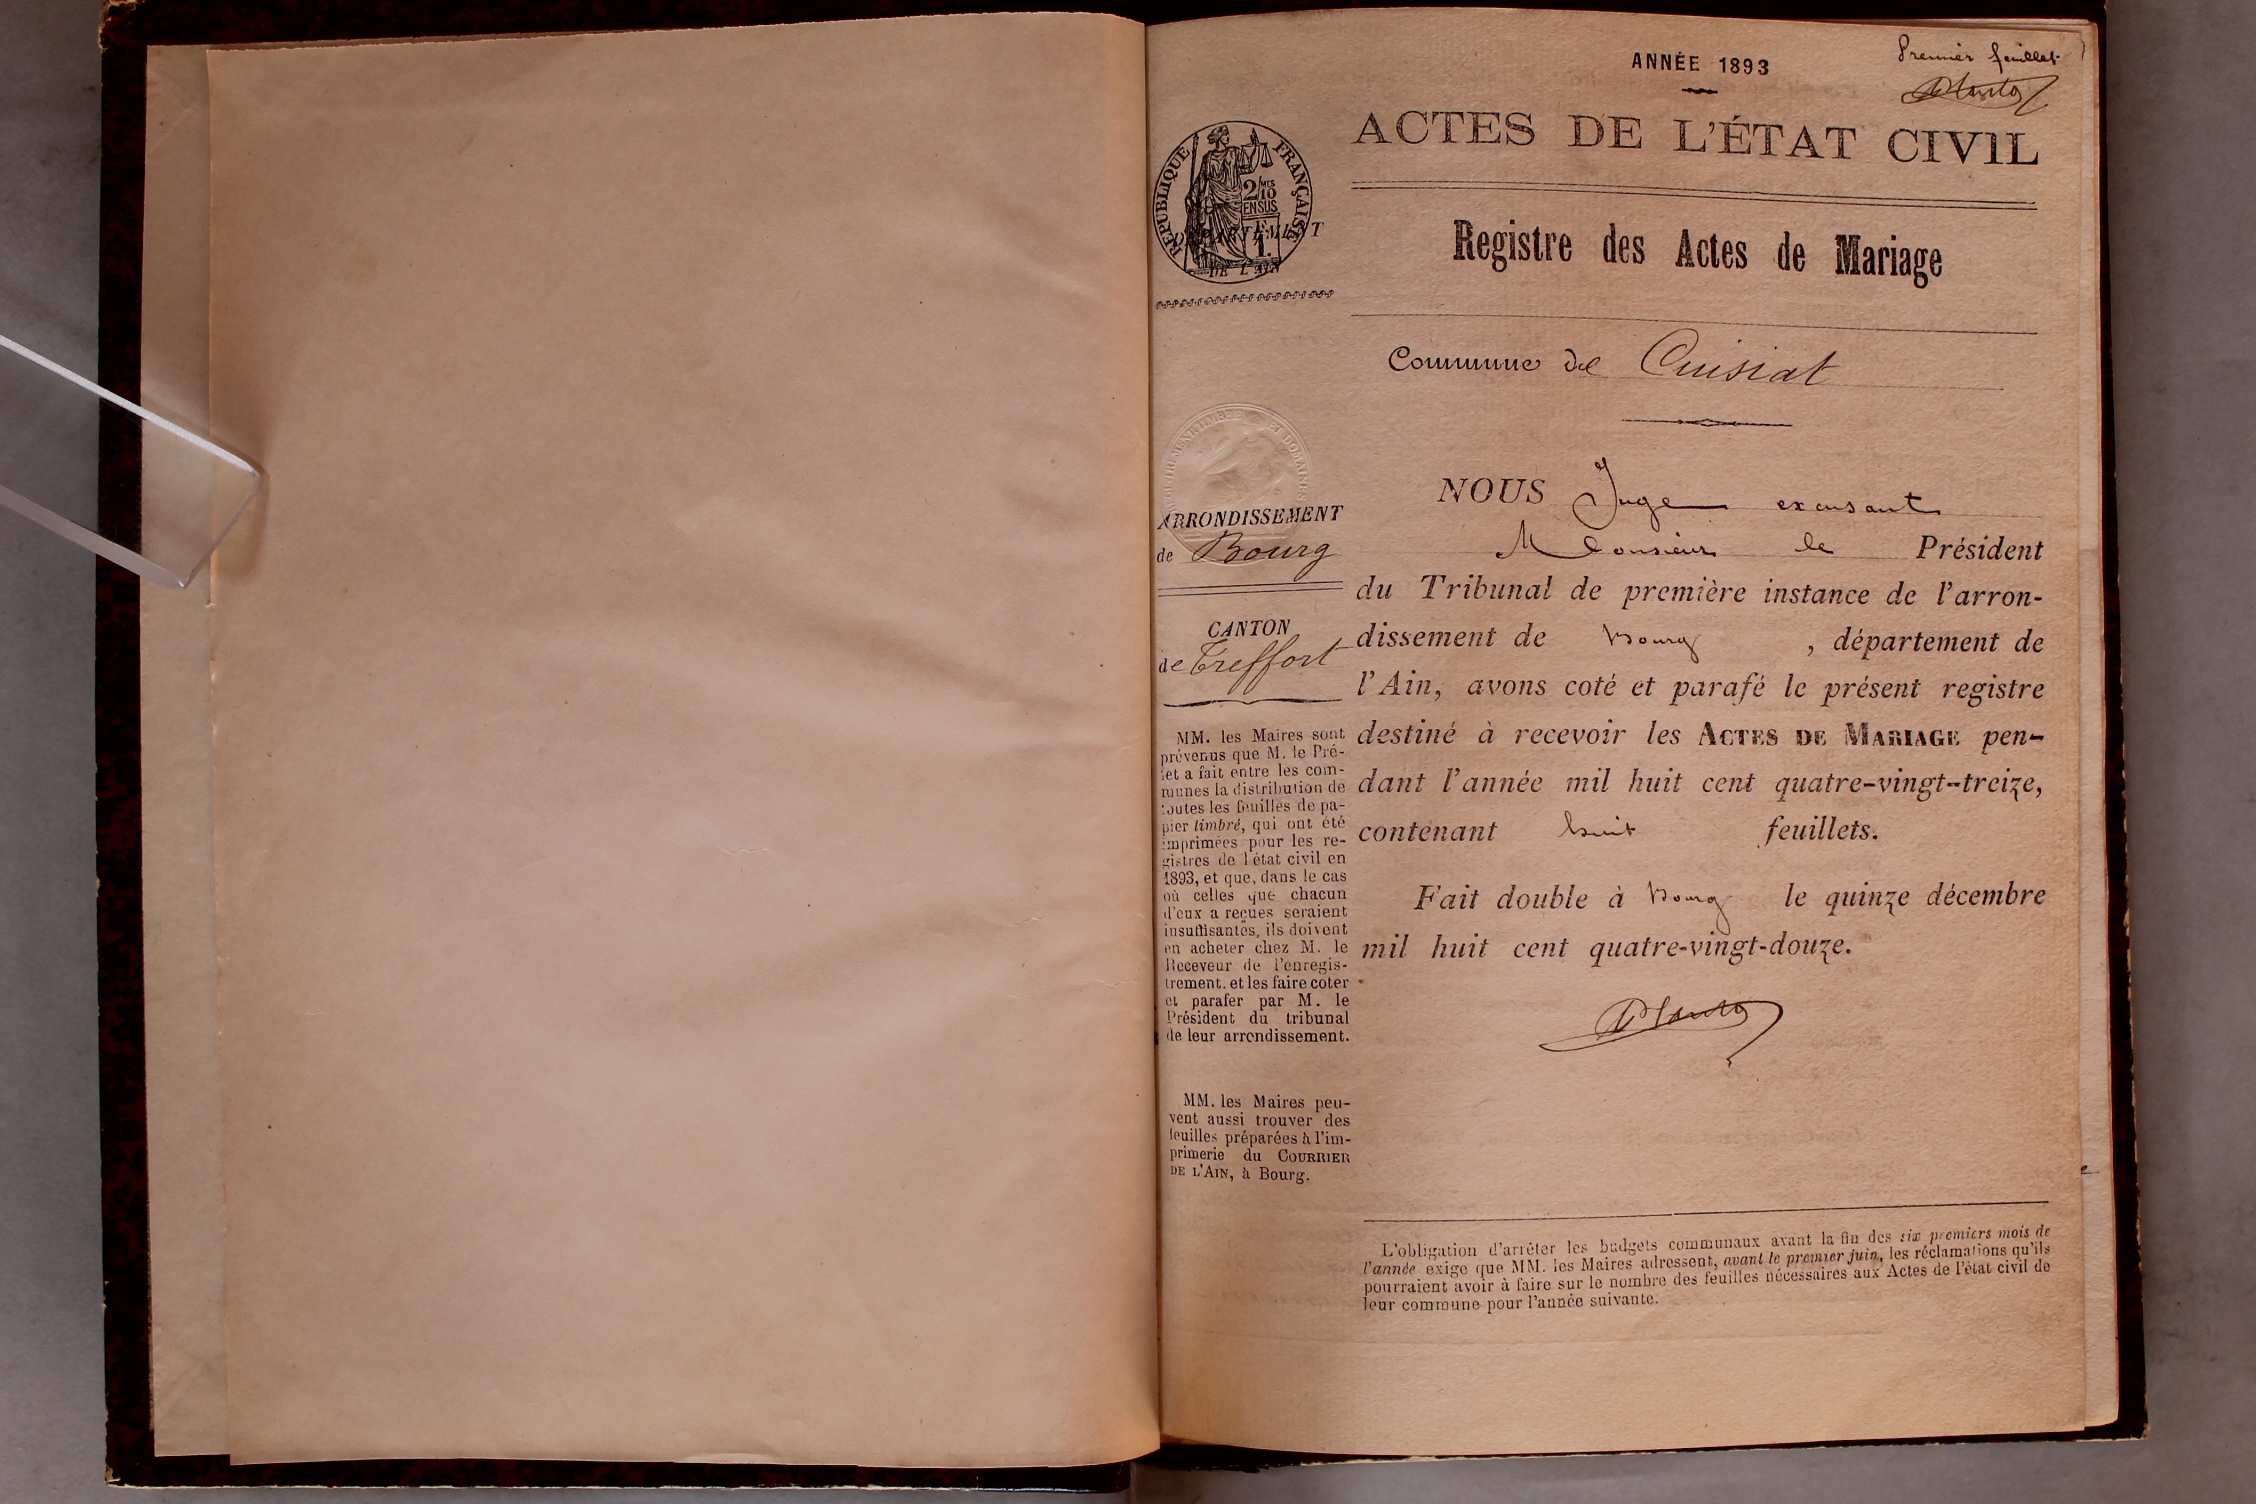 ANNÉE 1893
Premier feuillet
ACTES DE L'ÉTAT CIVIL
RÉPUBLIQUE FRANÇAISE
2/10MES
EN SUS
DÉPARTEMENT
DE L'AIN
Registre des Actes de Mariage
Commune de Cuisiat
ARRONDISSEMENT
de Bourg
CANTON
de Treffort
MM. les Maires sont
prévenus que M. le Pré-
fet a fait entre les com-
munes la distribution de
toutes les feuilles de pa-
pier timbré, qui ont été
imprimées pour les re-
gistres de l'état civil en
1893, et que, dans le cas
où celles que chacun
d'eux a reçues seraient
insuffisantes, ils doivent
en acheter chez M. le
Receveur de l'enregis-
trement. et les faire coter
et parafer par M. le
Président du tribunal
de leur arrondissement.
MM. les Maires peu-
vent aussi trouver des
feuilles préparées à l'im-
primerie du COURRIER
DE L'AIN, à Bourg.
NOUS Juge excusant
Monsieur le Président
du Tribunal de première instance de l'arron-
dissement de Bourg , département de
l'Ain, avons coté et parafé le présent registre
destiné à recevoir les ACTES DE MARIAGE pen-
dant l'année mil huit cent quatre-vingt-treize,
contenant huit feuillets.
Fait double à Bourg le quinze décembre
mil huit cent quatre-vingt-douze.
L'obligation d'arrêter les budgets communaux avant la fin des six premiers mois de
l'année exige que MM. les Maires adressent, avant le premier juin, les réclamations qu'ils
pourraient avoir à faire sur le nombre des feuilles nécessaires aux Actes de l'état civil de
leur commune pour l'année suivante.